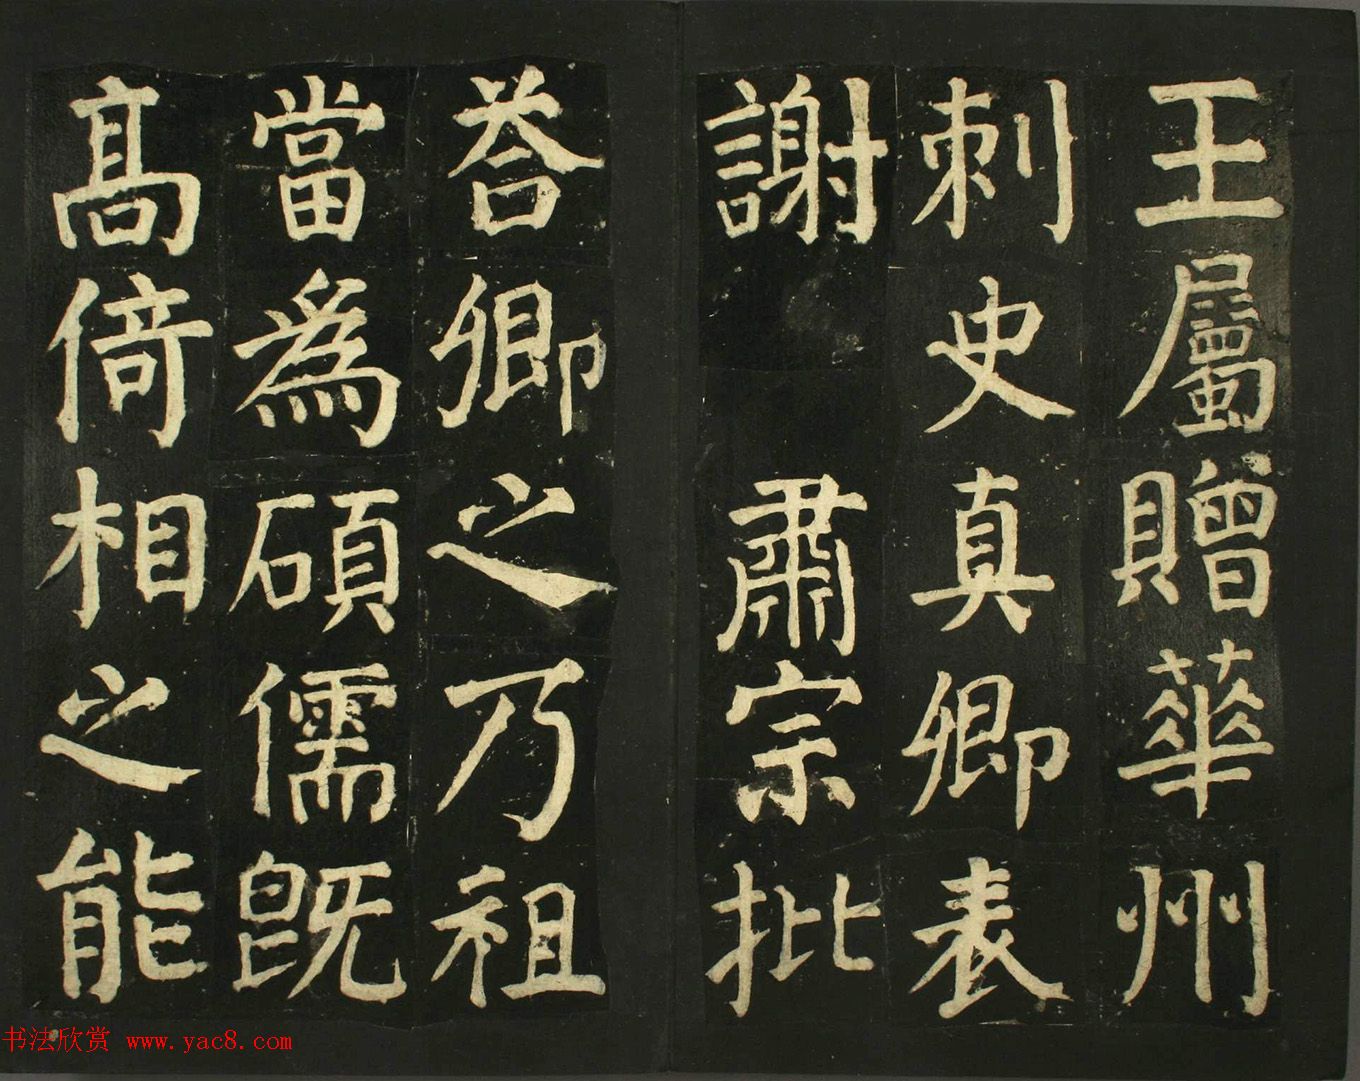 王屬贈華州
刺史真卿表
謝 肅宗批
荅卿之乃祖
當爲碩儒旣
高倚相之能
书法欣赏 www.yac8.com